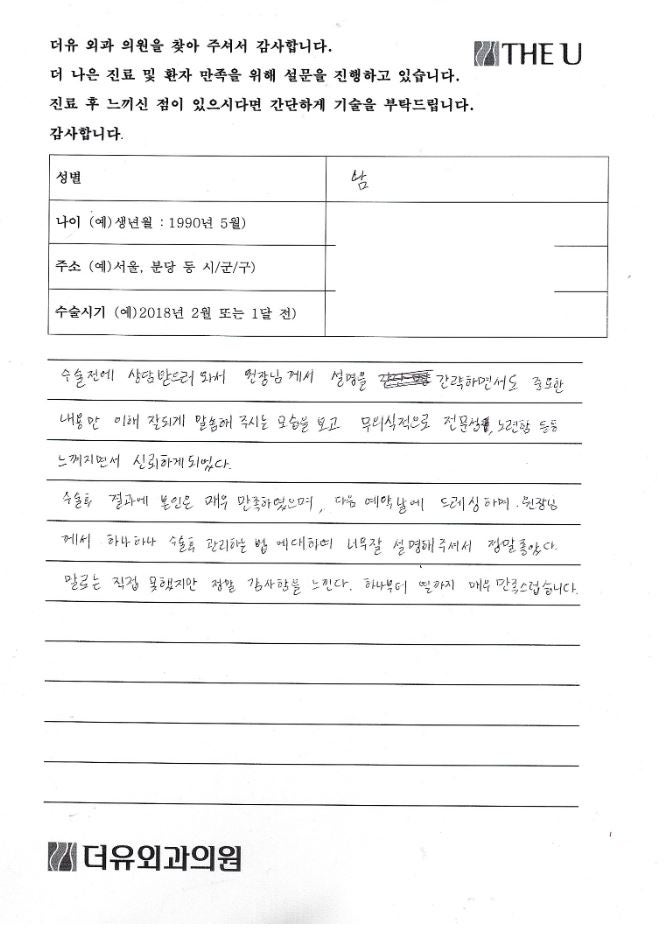 더유 외과 의원을 찾아 주셔서 감사합니다.
THE U
더 나은 진료 및 환자 만족을 위해 설문을 진행하고 있습니다.
진료 후 느끼신 점이 있으시다면 간단하게 기술을 부탁드립니다.
감사합니다.
성별 남
나이 (예)생년월 : 1990년 5월)
주소 (예)서울, 분당 등 시/군/구)
수술시기 (예)2018년 2월 또는 1달 전)
수술전에 상담받으러 와서 원장님께서 설명을 간략하면서도 중요한
내용만 이해 잘되게 말씀해 주시는 모습을 보고 무의식적으로 전문성, 노련함 등등
느껴지면서 신뢰하게되었다.
수술후 결과에 본인은 매우 만족하였으며, 다음 예약날에 드레싱하며 원장님
께서 하나하나 수술후 관리하는 법에대하여 너무잘 설명해주셔서 정말좋았다.
말로는 직접 못했지만 정말 감사함을 느낀다. 하나부터 열까지 매우만족스럽습니다.
더유외과의원